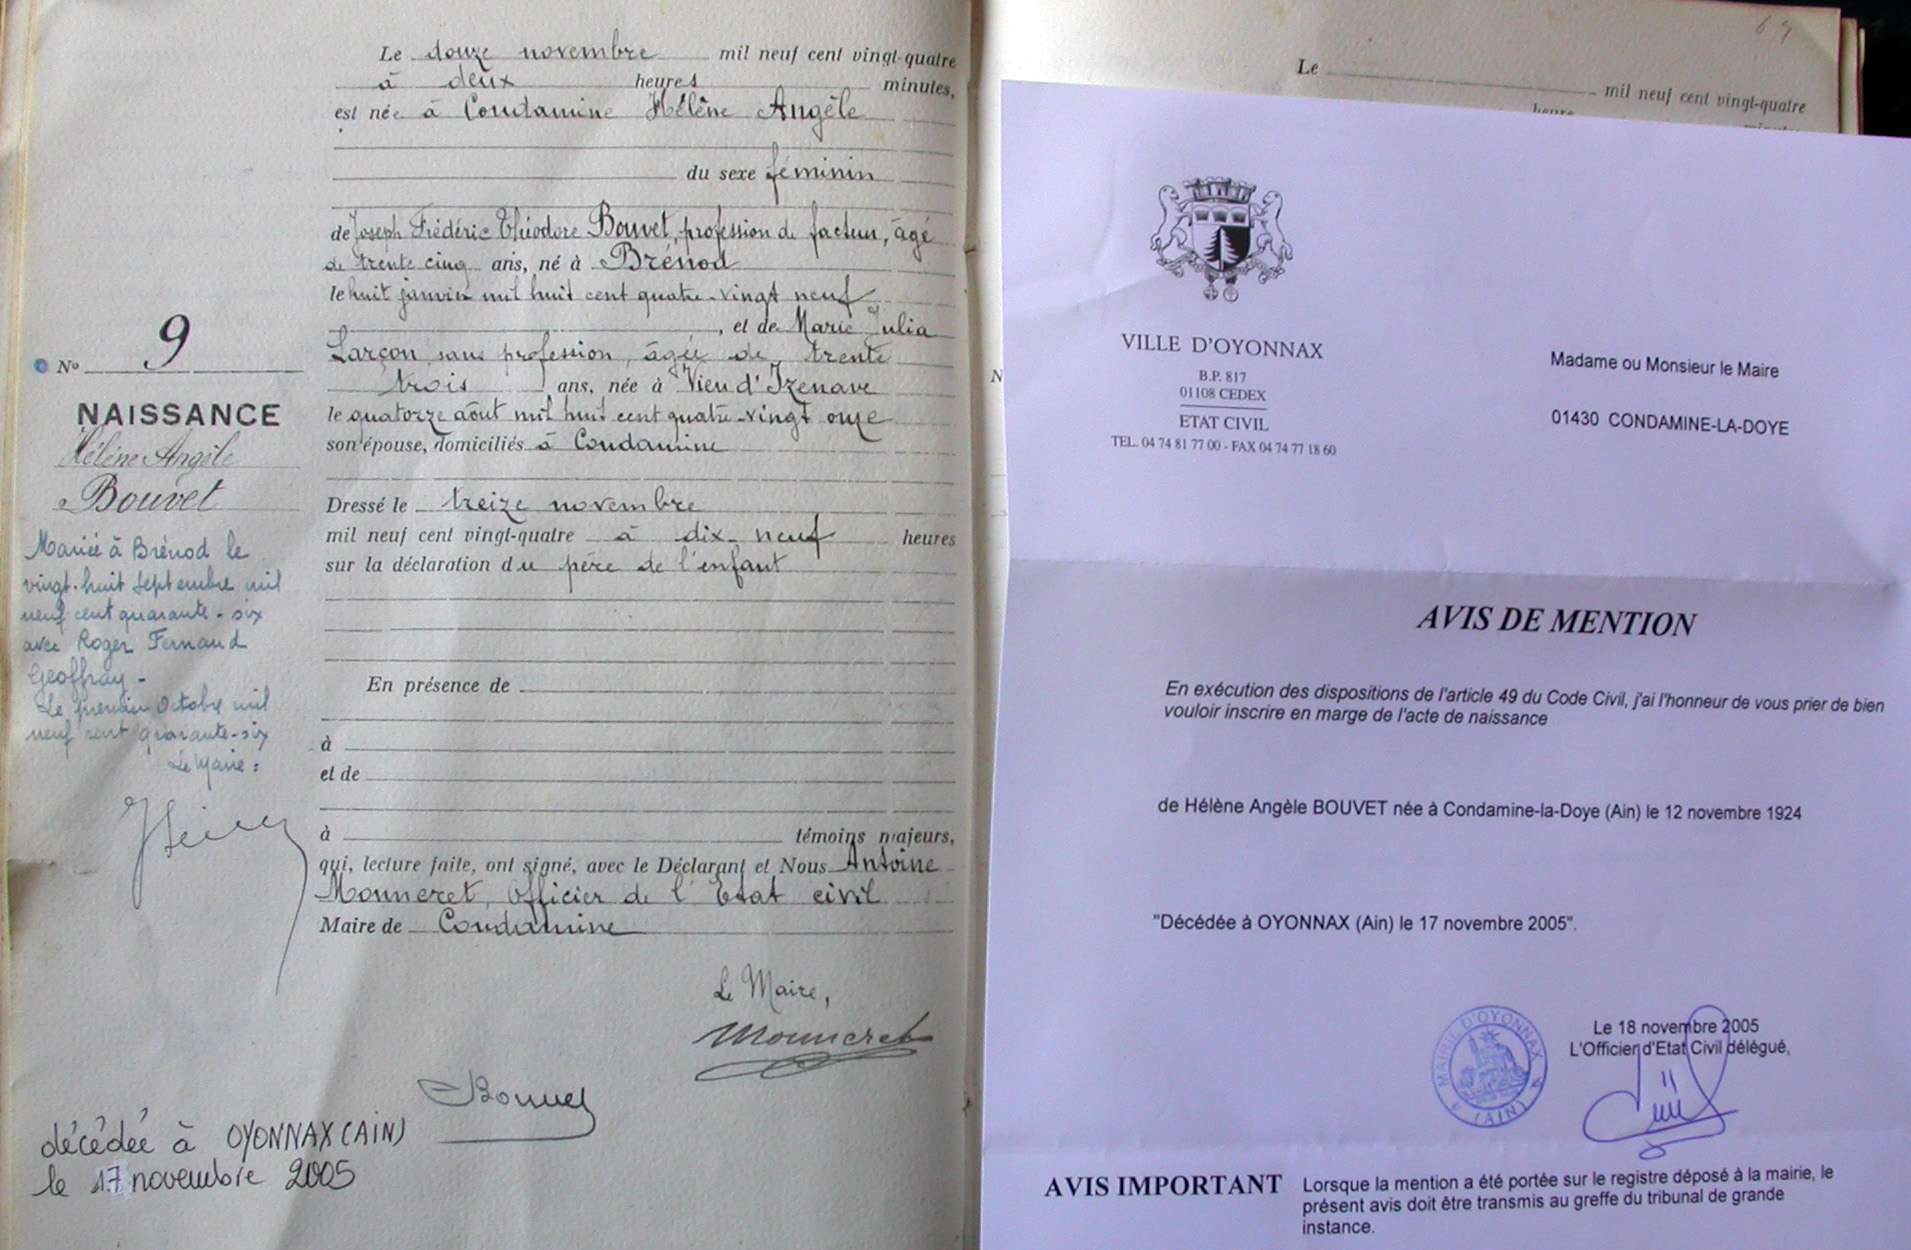 Le douze novembre mil neuf cent vingt-quatre
à deux heures minutes,
est née à Condamine Hélène Angèle
du sexe féminin
de Joseph Frédéric Théodore Bouvet, profession de facteur, âgé
de trente cinq ans, né à Brénod
le huit janvier mil huit cent quatre-vingt neuf
, et de Marie Julia
Larçon sans profession, âgée de trente
trois ans, née à Vieu d'Izenave
le quatorze août mil huit cent quatre-vingt onze
son épouse, domiciliés à Condamine
Dressé le treize novembre
mil neuf cent vingt-quatre à dix-neuf heures
sur la déclaration du père de l'enfant
En présence de
à
et de
à témoins majeurs,
qui, lecture faite, ont signé, avec le Déclarant et Nous Antoine
Monneret, Officier de l'Etat civil
Maire de Condamine
Le Maire,
Monneret
Bouvet
No 9
NAISSANCE
Hélène Angèle
Bouvet
Mariée à Brénod le
vingt-huit septembre mil
neuf cent quarante-six
avec Roger Fernand
Geoffray -
Le premier Octobre mil
neuf cent quarante-six
Le Maire :
décédée à OYONNAX (AIN)
le 17 novembre 2005
69
Le mil neuf cent vingt-quatre
heure
minutes
N
VILLE D'OYONNAX
B.P. 817
01108 CEDEX
ETAT CIVIL
TEL. 04 74 81 77 00 - FAX 04 74 77 18 60
Madame ou Monsieur le Maire
01430 CONDAMINE-LA-DOYE
AVIS DE MENTION
En exécution des dispositions de l'article 49 du Code Civil, j'ai l'honneur de vous prier de bien
vouloir inscrire en marge de l'acte de naissance
de Hélène Angèle BOUVET née à Condamine-la-Doye (Ain) le 12 novembre 1924
"Décédée à OYONNAX (Ain) le 17 novembre 2005".
Le 18 novembre 2005
L'Officier d'Etat Civil délégué,
MAIRIE D'OYONNAX
(AIN)
AVIS IMPORTANT Lorsque la mention a été portée sur le registre déposé à la mairie, le
présent avis doit être transmis au greffe du tribunal de grande
instance.